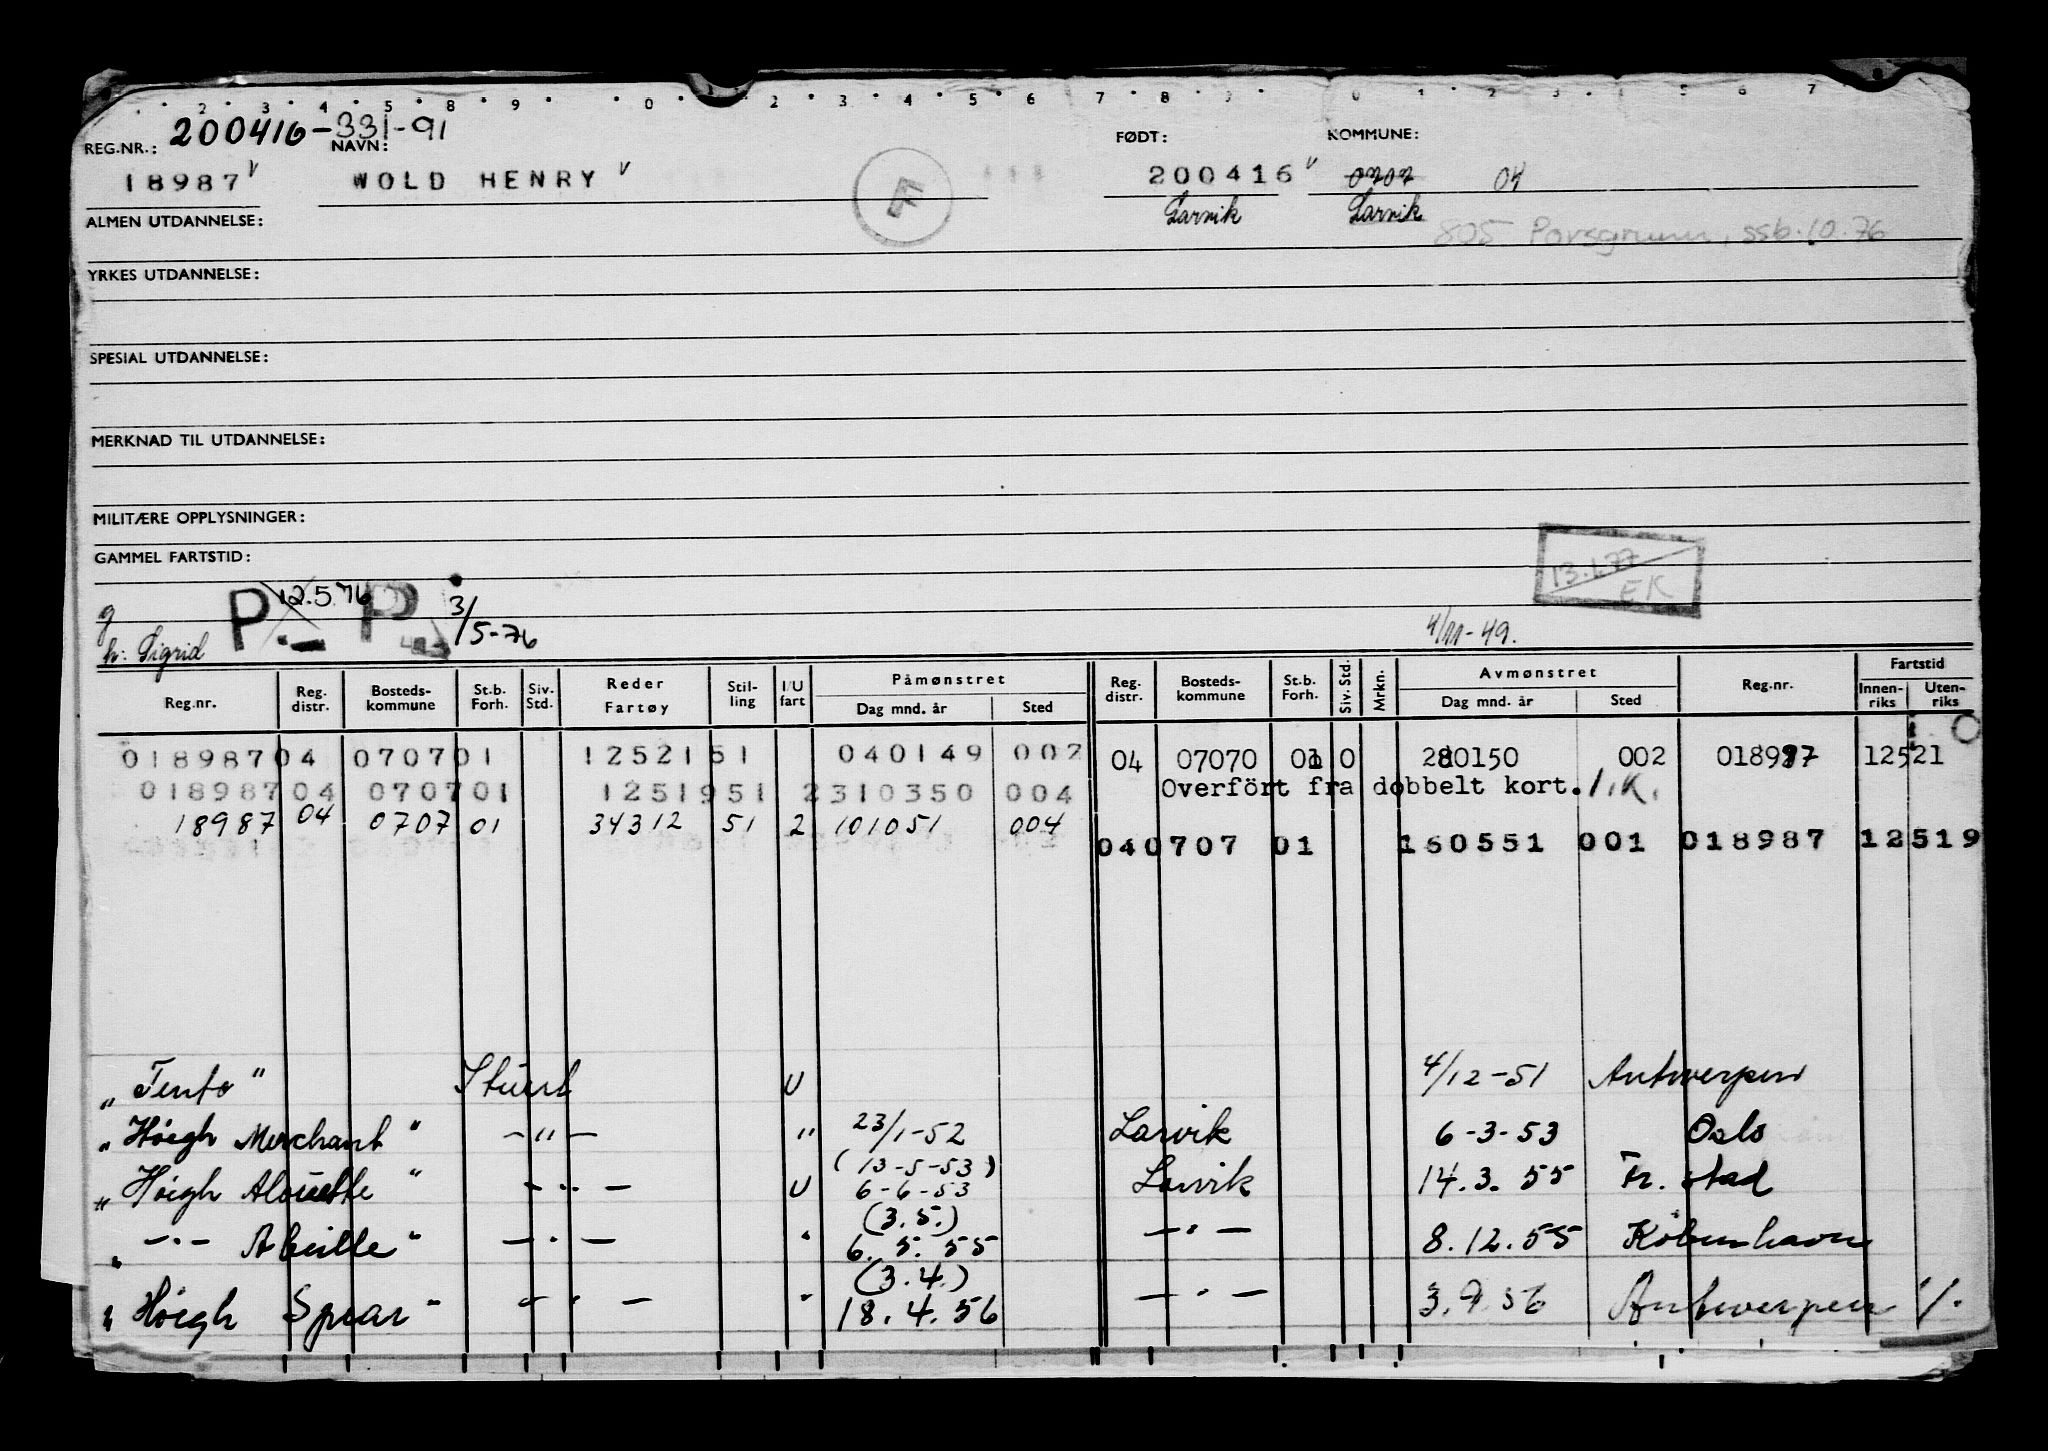 2 3 4 5 8 9 0 2 3 4 5 6 7 8 9 0 1 2 3 5 6 7
200416-331-91
REG.NR.: NAVN: FØDT: KOMMUNE:
18987 v WOLD HENRY v F 200416 v 0707 04
Larvik Larvik
ALMEN UTDANNELSE: 805 Porsgrunn, ssb. 10.76
YRKES UTDANNELSE:
SPESIAL UTDANNELSE:
MERKNAD TIL UTDANNELSE:
MILITÆRE OPPLYSNINGER:
GAMMEL FARTSTID:
13.1.77
EK
g P 12.5.76 P 3/5-76
h: Sigrid 4/11-49.
Reg.nr. Reg. distr. Bosteds-kommune St.b. Forh. Siv. Std. Reder Fartøy Stil-ling I/U fart Påmønstret Dag mnd. år Sted Reg. distr. Bosteds-kommune St.b. Forh. Siv. Std. Mrkn. Avmønstret Dag mnd. år Sted Reg.nr. Fartstid Innen-riks Uten-riks
018987 04 0707 01 12521 51 040149 002 04 07070 01 0 280150 002 018987 12521 0
018987 04 0707 01 12519 51 2 310350 004 Overfört fra dobbelt kort. I.K.
18987 04 0707 01 34312 51 2 101051 004
04 0707 01 160551 001 018987 12519
"Tento" Stuert U 4/12-51 Antwerpen
"Höegh Merchant" -"- " 23/1-52 Larvik 6-3-53 Oslo
(13-5-53)
"Höegh Alouette" -"- U 6-6-53 Larvik 14.3.55 Fr. stad
(3.5.)
" -"- Abeille" -"- " 6.5.55 -"- 8.12.55 København
(3.4.)
"Höegh Spear" -"- " 18.4.56 -"- 3.9.56 Antwerpen ./.